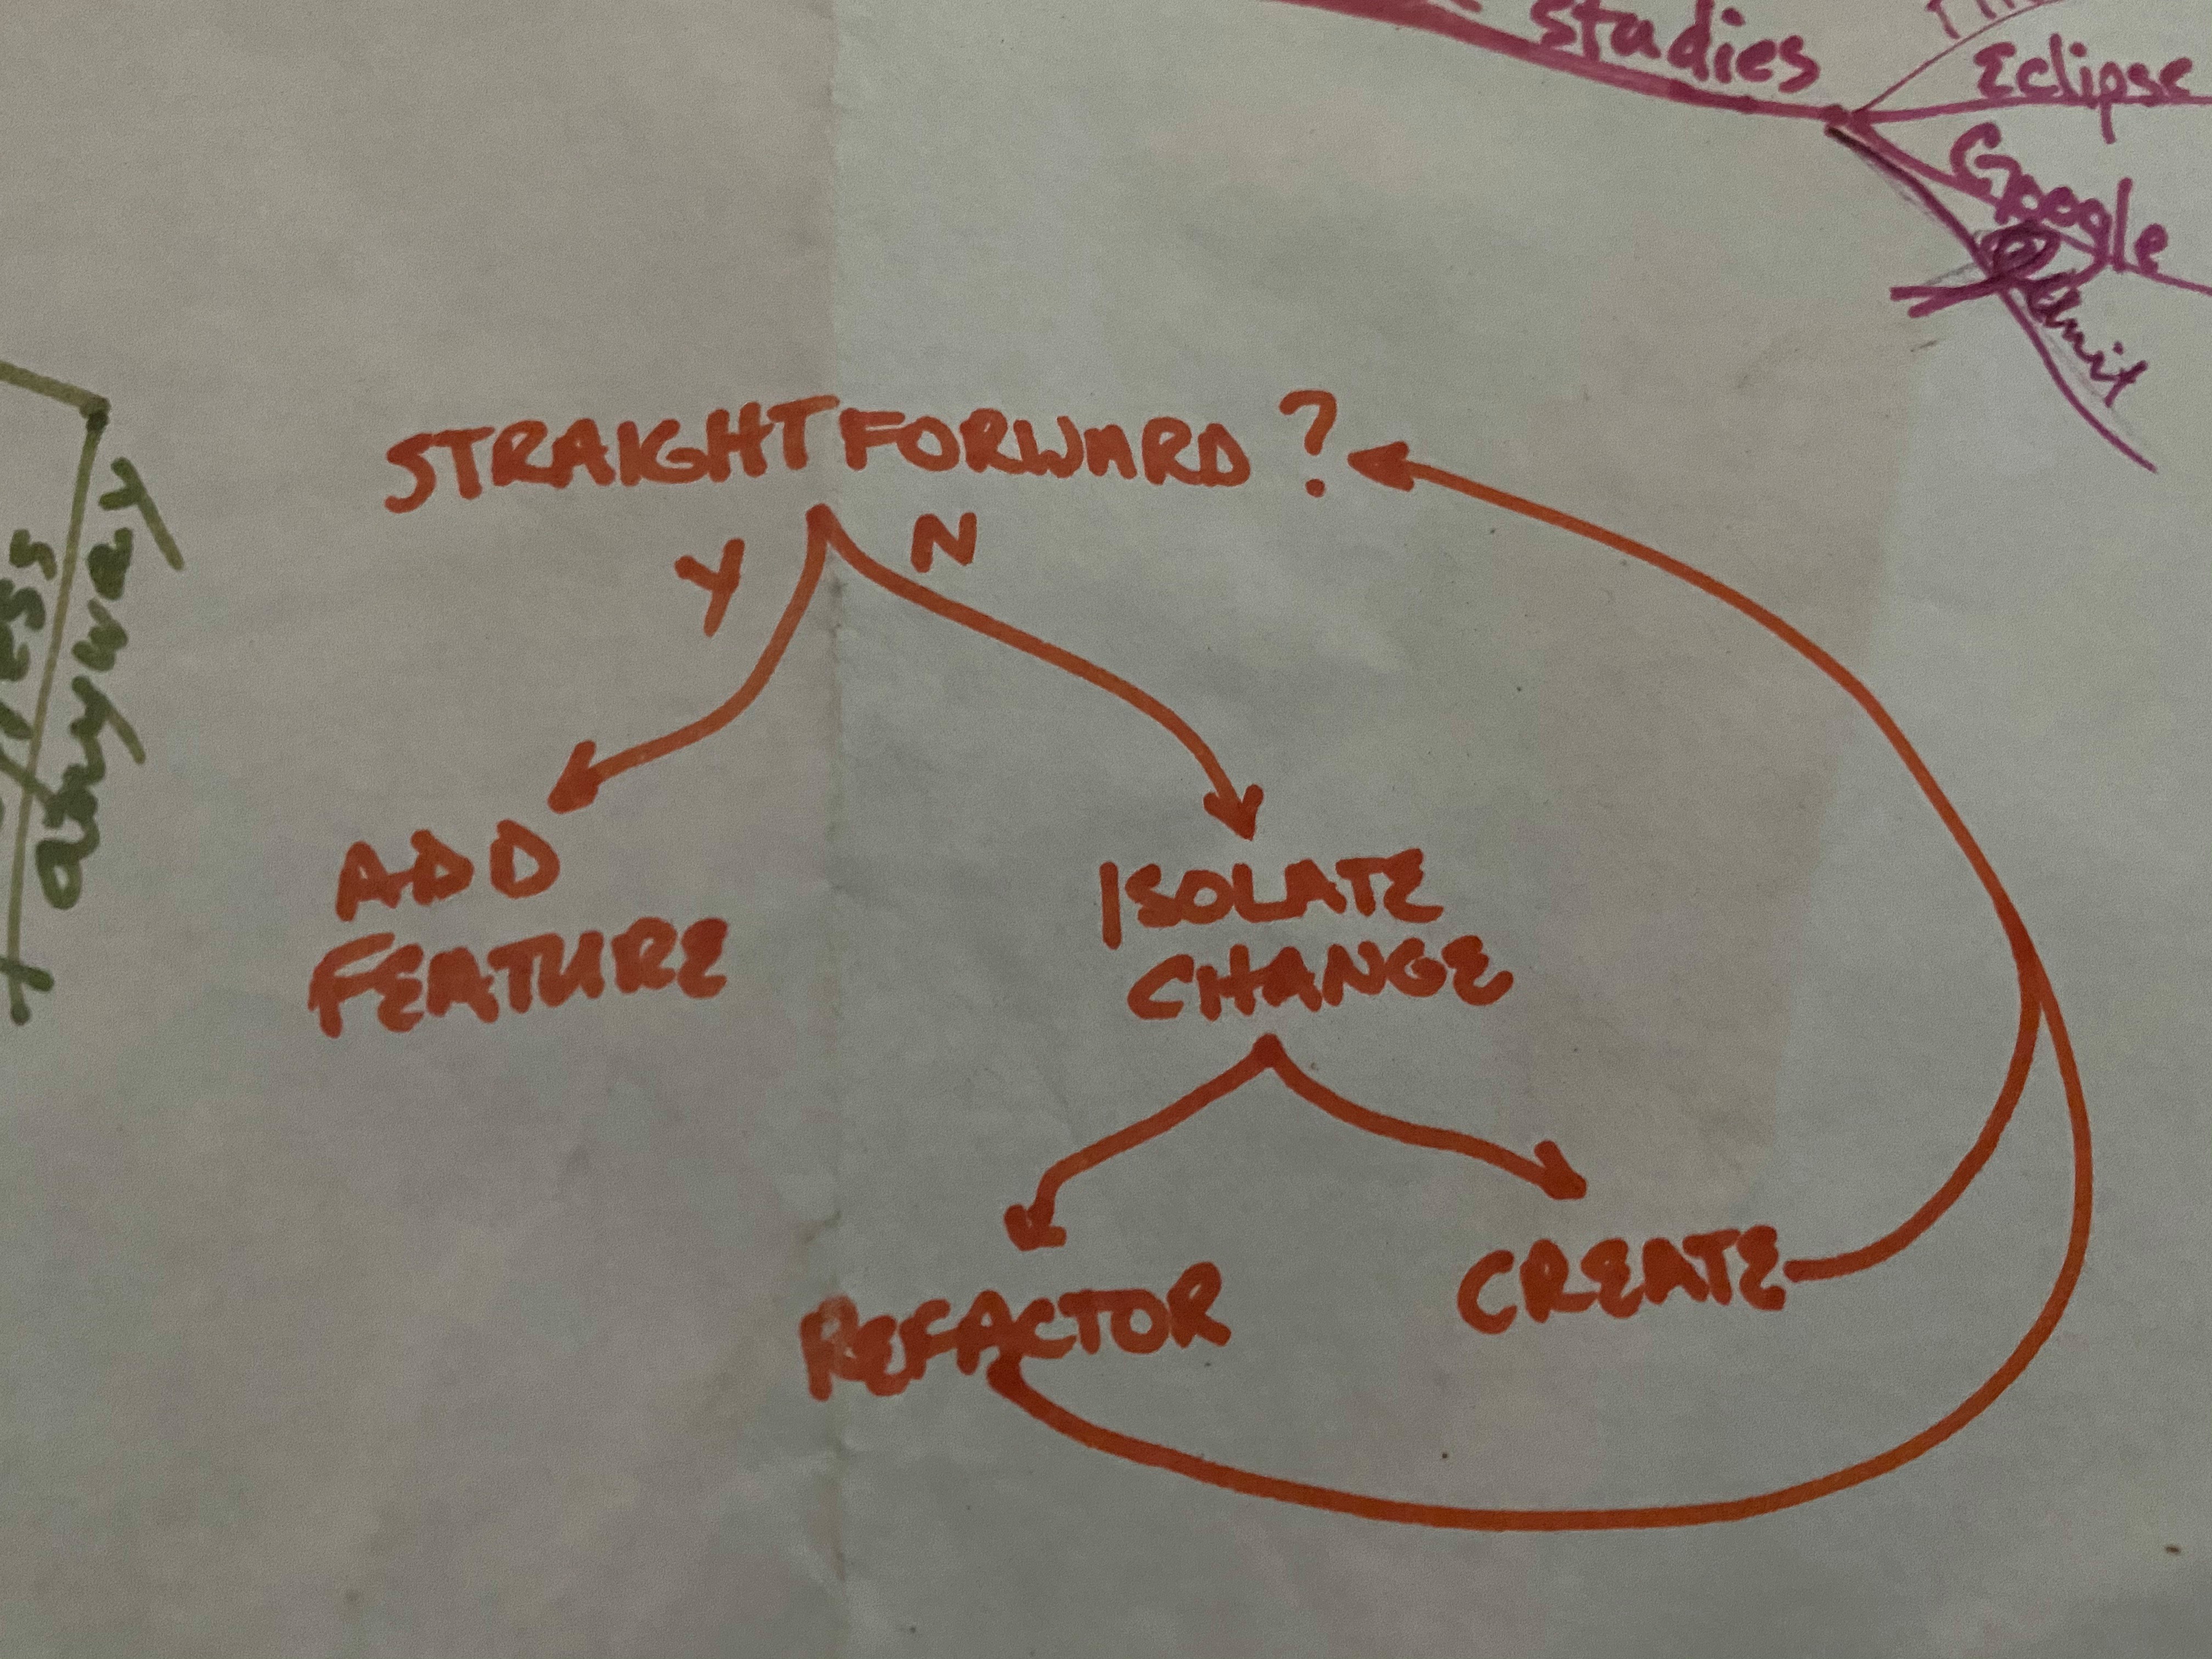 Studies
Eclipse
Google
JUnit
STRAIGHTFORWARD?
Y N
ADD
FEATURE
ISOLATE
CHANGE
REFACTOR
CREATE
anyway